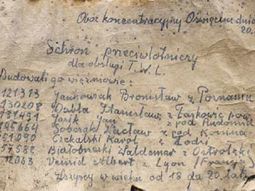 Obóz koncentracyjny Oświęcim dnia
20.
Schron przeciwlotniczy
dla obsługi T.W.L.
Budowali go więźniowie:
121313 Jankowiak Bronisław z Poznania
130208 Dubla Stanisław z Łaskowic pow.
Jasik Jan z pod Radomia
145664 Sobczak Wacław z pod Konina
Karol z Łodzi
Białobrzeski Waldemar z Ostrołęki
12063 Veissid Albert z Lyon (Francj
Wszyscy w wieku od 18 do 20 lat